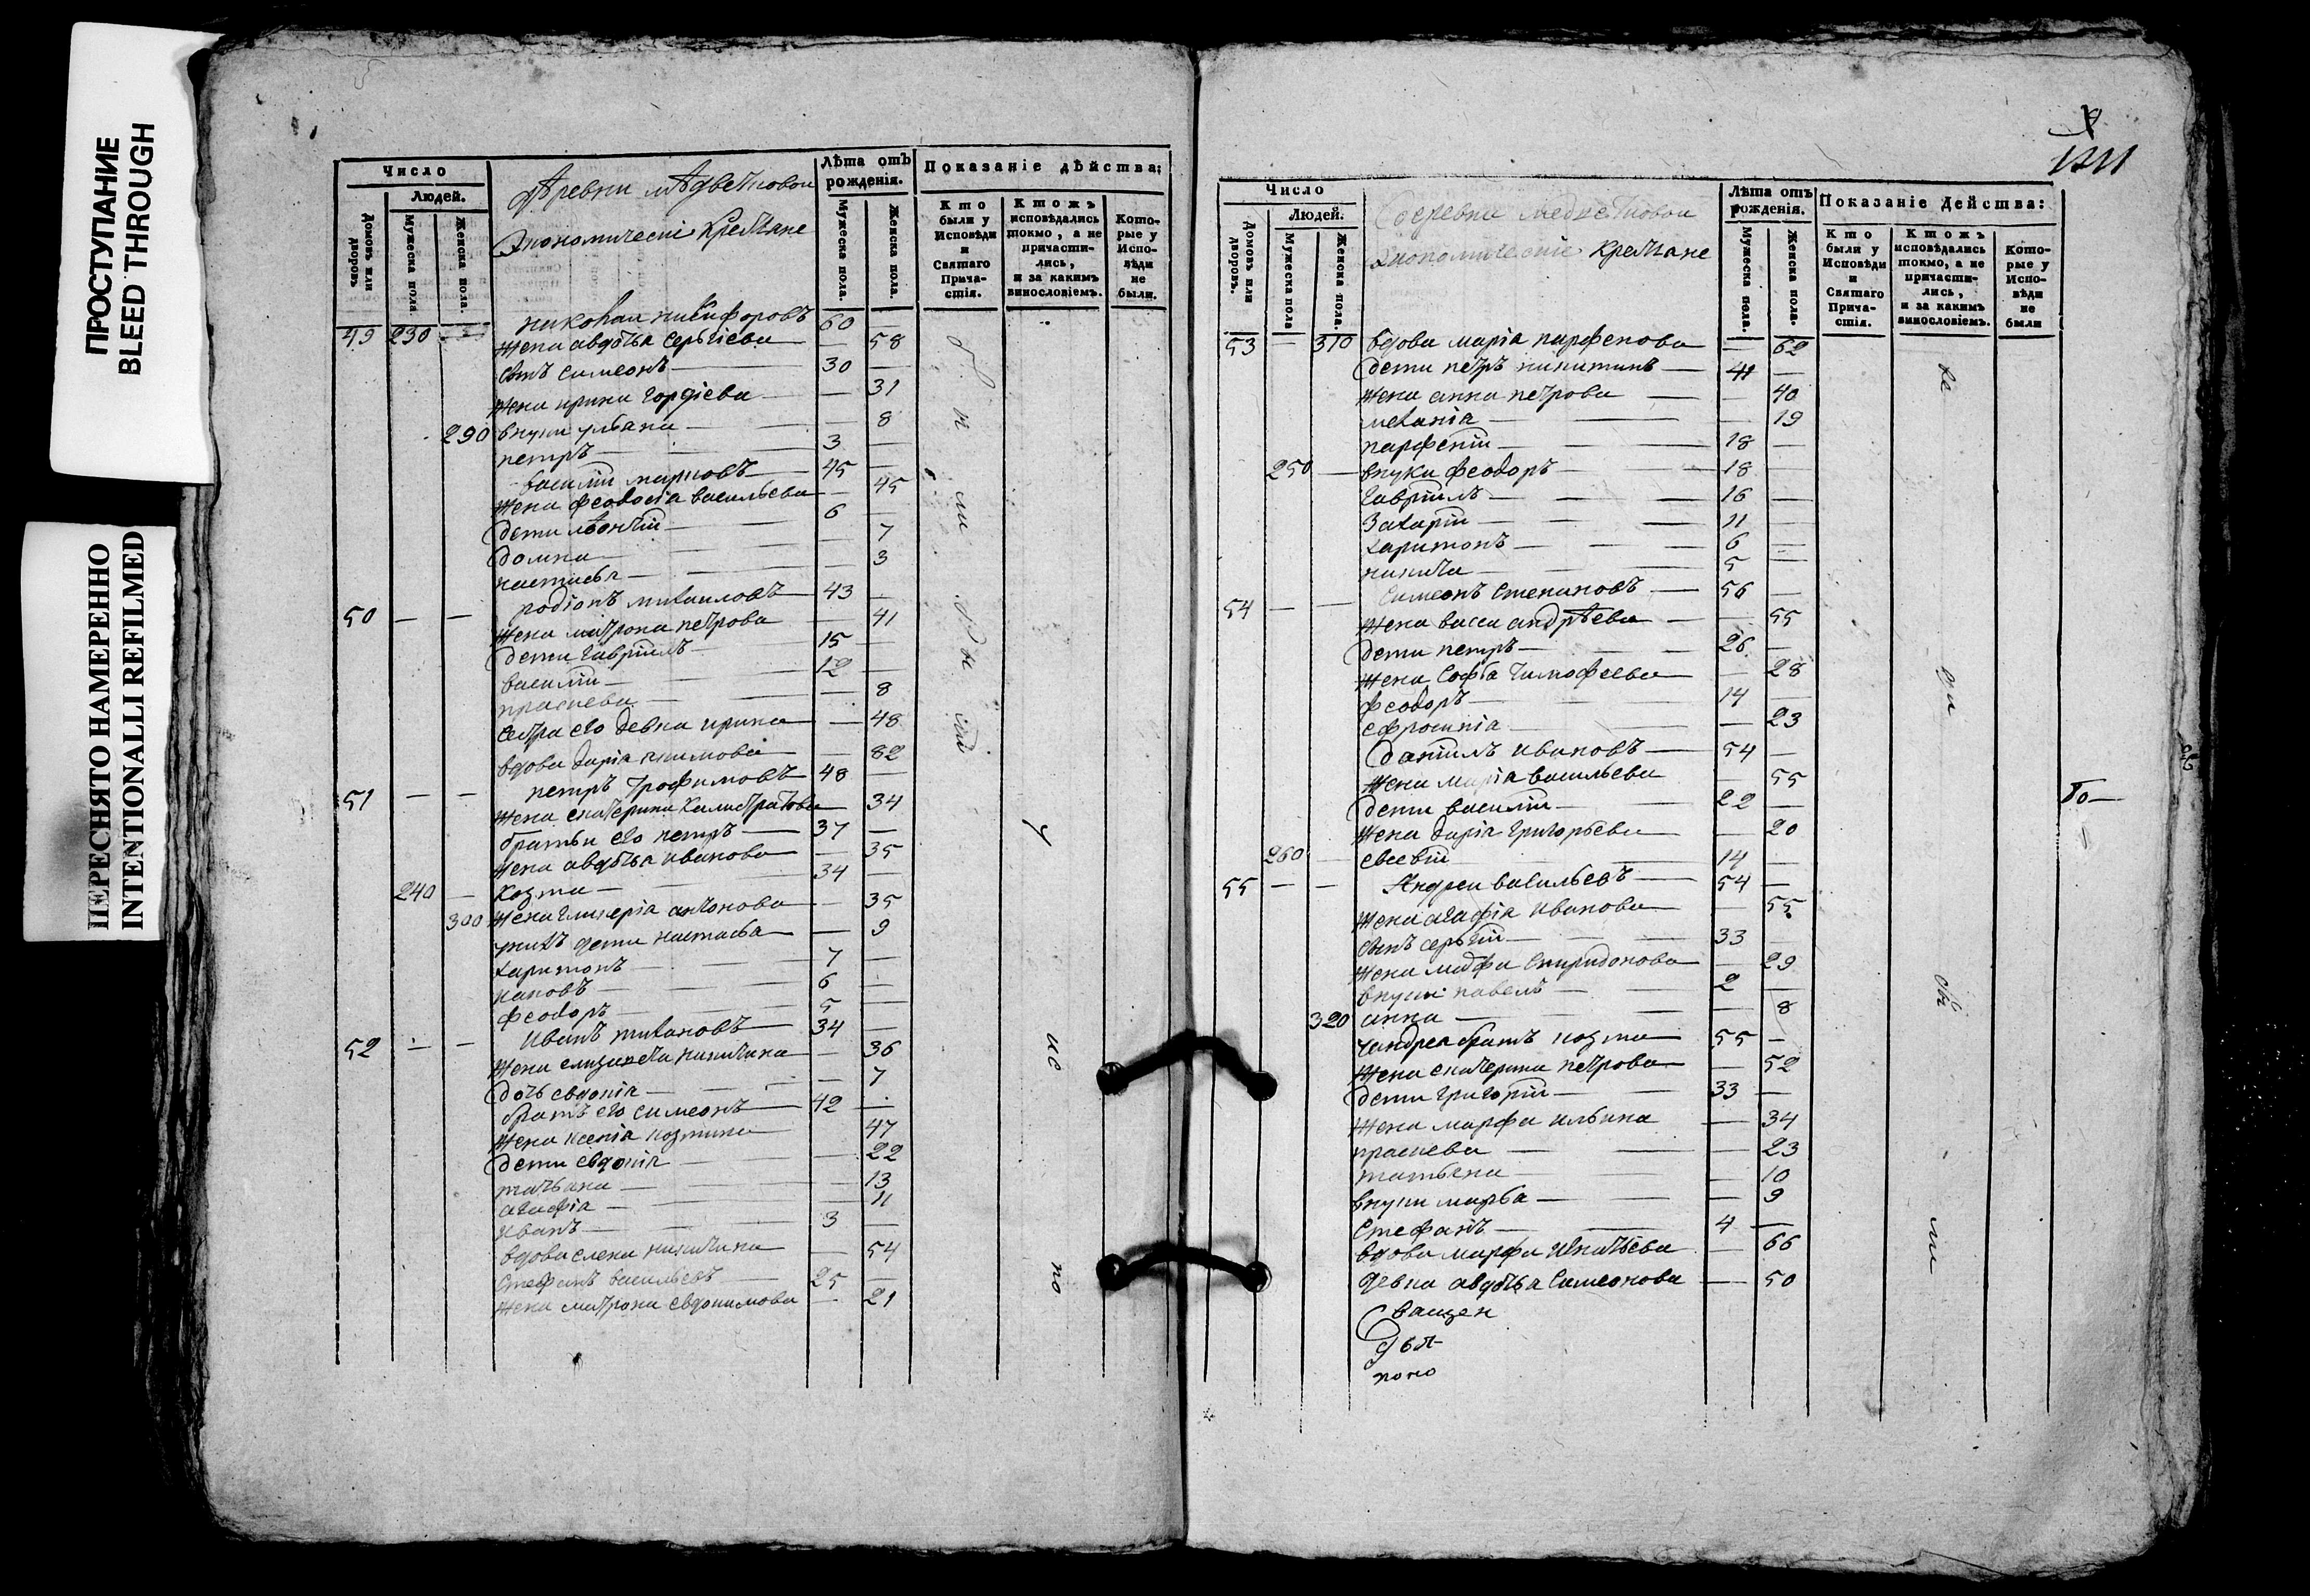 ПРОСТУПАНИЕ
BLEED THROUGH
ПЕРЕСНЯТО НАМЕРЕННО
INTENTIONALLI REFILMED
Число
Людей.
Домовъ или дворовъ.
Мужеска пола.
Женска пола.
деревни медветковои
Экономическіе Крестьане
Лѣта отъ рожденія.
Мужеска пола.
Женска пола.
Показаніе дѣйства:
Кто были у Исповѣди и Святаго Причастія.
Ктожъ исповѣдались токмо, а не причастились, и за какимъ винословіемъ.
Которые у Исповѣди не были.
49 230 николаи никифоровъ 60
жена авдотья сергіева — 58
сынъ симеонъ — 30 —
жена ирина гордіева — 31
290 внуки ульана — 8
петръ — 3
василіи марковъ — 45 —
жена феодосіа васильева — 45
дети леонтіи — 6 —
домна — 7
настасьа — 3
50 — — родіонъ михаиловъ — 43 —
жена матрона петрова — 41
дети гавріилъ — 15 —
василіи — 12 —
прасковьа — 8
сестра его девка ирина — 48
вдова даріа акимова — 82
51 — — петръ трофимовъ — 48 —
жена екатерина калистратова — 34
братьи его петръ — 37 —
жена авдотьа иванова — 35
240 — козма — 34 —
300 жена гликеріа антонова — 35
у нихъ дети настасьа — 9
харитонъ — 7 —
иаковъ — 6 —
феодоръ — 5 —
52 — — иванъ тихановъ — 34 —
жена елизавета никитина — 36
дочь евдокіа — 7
братъ его симеонъ — 42 —
жена ксеніа козмина 47
дети евдокіа — 22
татьана — 13
агафіа — 11
иванъ — 3 —
вдова елена никитина — 54
стефанъ васильевъ — 25 —
жена матрона евдокимова — 21
у
ис
по
1211
Число
Людей.
Домовъ или дворовъ.
Мужеска пола
Женска пола.
деревни медветковои
экономическіе крестьане
Лѣта отъ рожденія.
Мужеска пола.
Женска пола.
Показаніе Действа:
Кто были у Исповѣди и Святаго Причастія.
Ктожъ исповѣдались токмо, а не причастились, и за какимъ винословіемъ.
Которые у Исповѣди не были
53 — 310 вдова маріа парфенова — 62
дети петръ никитинъ — 41 —
жена анна петрова — 40
меланіа — 19
парфеніи — 18 —
250 — внуки феодоръ — 18 —
гавріилъ — 16 —
захаріи — 11 —
харитонъ — 6 —
никита — 5 —
54 — — симеонъ степановъ — 56 —
жена васса андрѣева — 55
дети петръ — 26 —
жена софьа тимофеева — 28
феодоръ — 14 —
ефросиніа — 23
даніилъ ивановъ — 54 —
жена маріа васильева — 55
дети василіи — 22 —
жена даріа григорьева — 20
260 — евсевіи — 14 —
55 — — Андреи васильевъ — 54 —
жена агафіа иванова — 55
сынъ сергіи — 33 —
жена марфа спиридонова — 29
внуки павелъ — 2 —
320 анна — 8
у андреа братъ козма — 55 —
жена екатерина петрова — 52
дети григоріи — 33 —
жена марфа ильина — 34
прасковьа — 23
татьана — 10
внуки марьа — 9
стефанъ — 4 —
вдова марфа игнатьева — 66
девка авдотьа симеонова — 50
Сващен
Дьа
поно
ве
ди
бы
ли